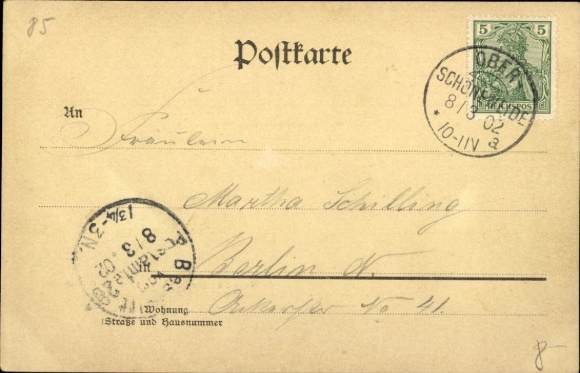 85
Postkarte
5 5
REICHSPOST
OBER
SCHÖNEWEIDE
8/3 02
* 10-11V a
An
Fräulein
Martha Schilling
Berlin N.
No 41.
1 3/4-3N.
8/3
02
in
(Wohnung
(Straße und Hausnummer
8-